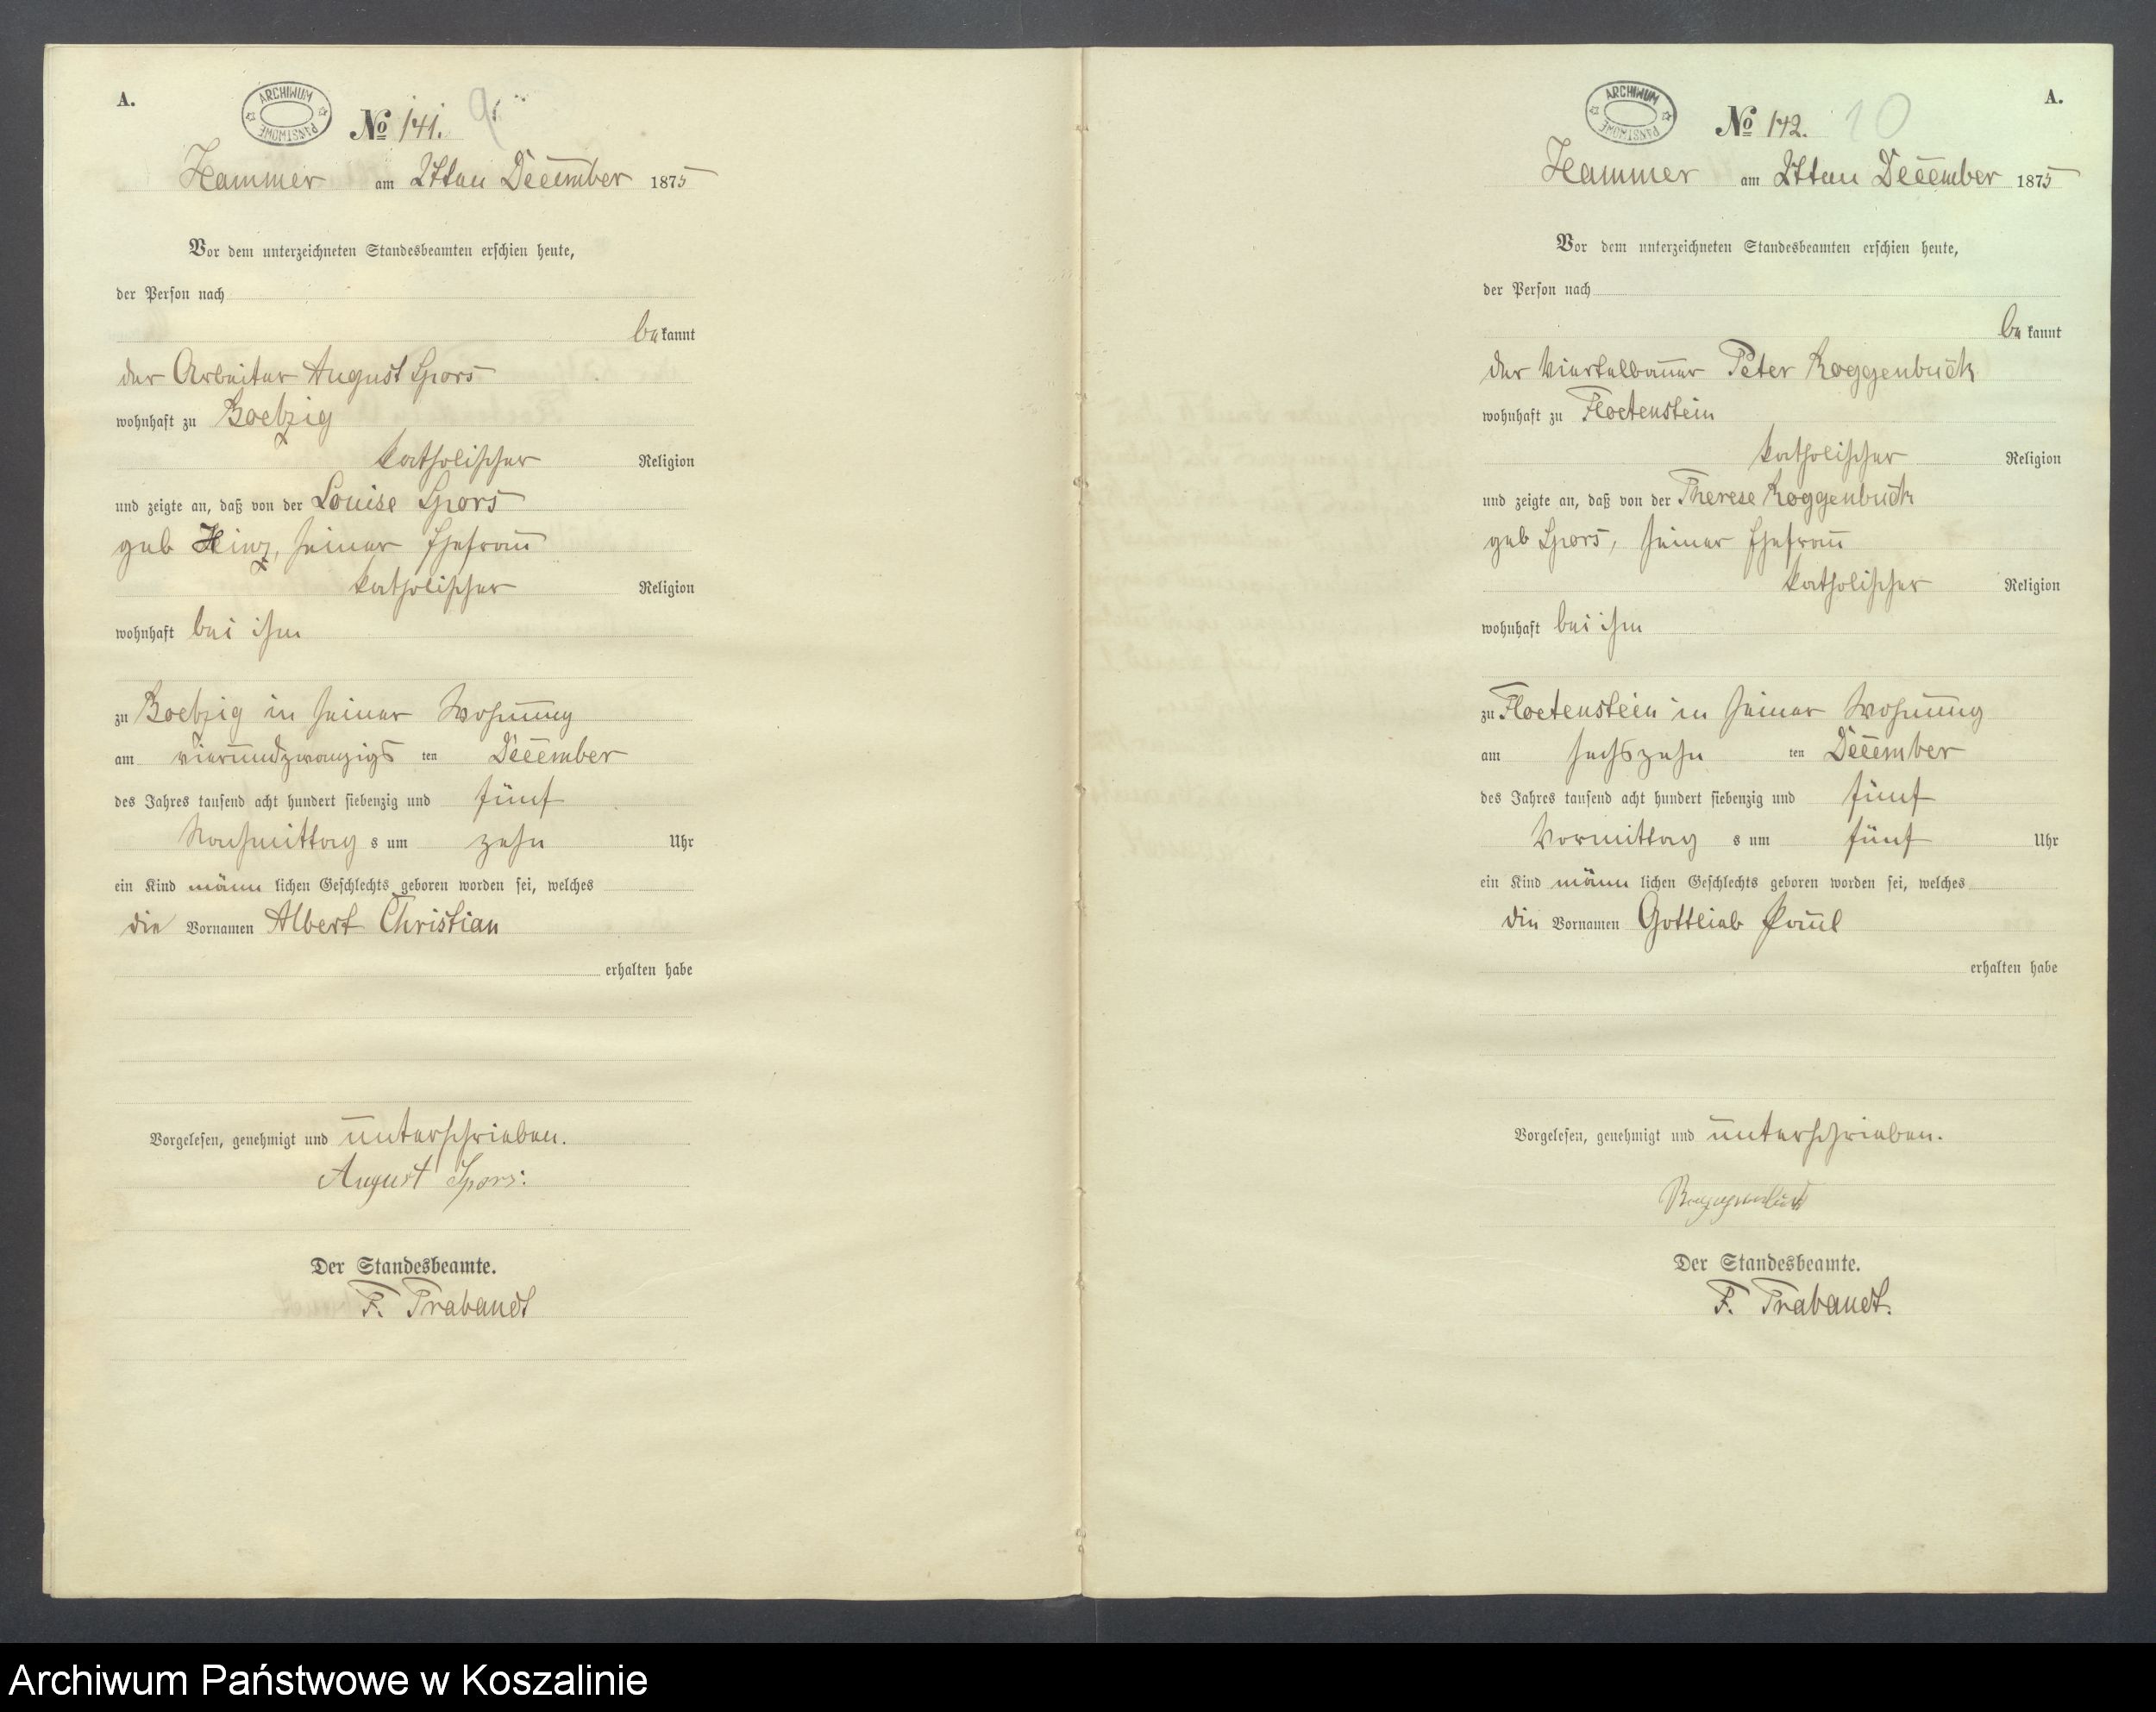 A.
ARCHIWUM PAŃSTWOWE
№ 141. 9
Hammer am 27ten December 1875
Vor dem unterzeichneten Standesbeamten erschien heute,
der Person nach
be kannt
der Arbeiter August Spors
wohnhaft zu Boetzig
katholischer Religion
und zeigte an, daß von der Louise Spors
geb Hinz, seiner Ehefrau
katholischer Religion
wohnhaft bei ihm
zu Boetzig in seiner Wohnung
am vierundzwanzigs ten December
des Jahres tausend acht hundert siebenzig und fünf
Nachmittag s um zehn Uhr
ein Kind männ lichen Geschlechts geboren worden sei, welches
die Vornamen Albert Christian
erhalten habe
Vorgelesen, genehmigt und unterschrieben.
August Spors.
Der Standesbeamte.
F. Trabandt
A.
ARCHIWUM PAŃSTWOWE
№ 142. 10
Hammer am 27ten December 1875
Vor dem unterzeichneten Standesbeamten erschien heute,
der Person nach
be kannt
der Viertelbauer Peter Roggenbuck
wohnhaft zu Floetenstein
katholischer Religion
und zeigte an, daß von der Therese Roggenbuck
geb Spors, seiner Ehefrau
katholischer Religion
wohnhaft bei ihm
zu Floetenstein in seiner Wohnung
am sechszehn ten December
des Jahres tausend acht hundert siebenzig und fünf
Vormittag s um fünf Uhr
ein Kind männ lichen Geschlechts geboren worden sei, welches
die Vornamen Gottlieb Paul
erhalten habe
Vorgelesen, genehmigt und unterschrieben.
Roggenbuck
Der Standesbeamte.
F. Trabandt.
Archiwum Państwowe w Koszalinie